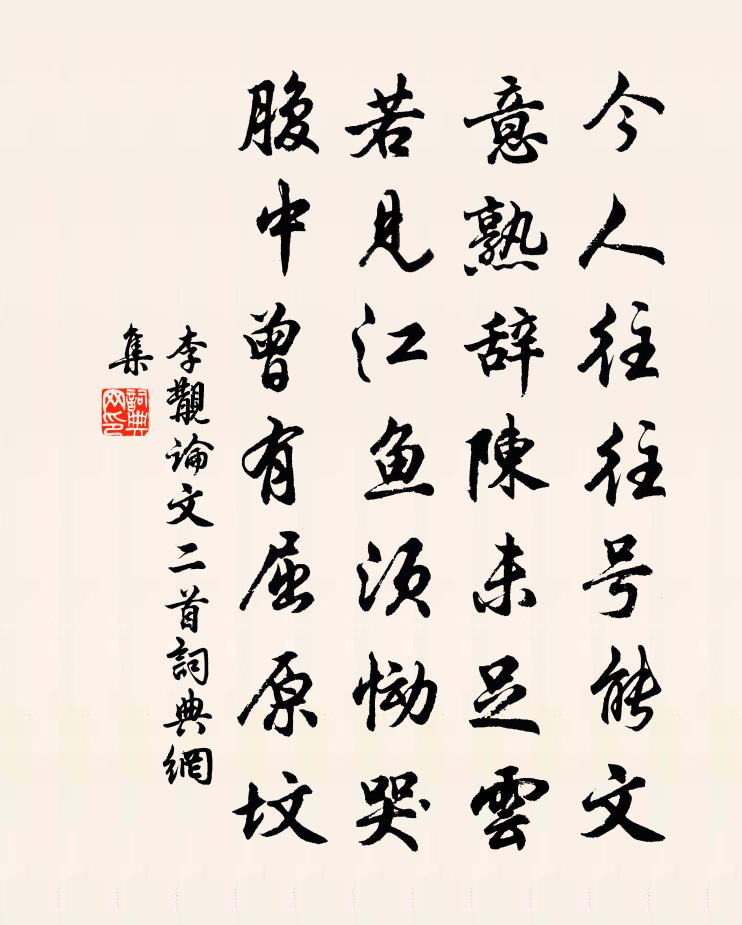 今人往往号能文
意熟辞陳未足雲
若見江鱼须恸哭
腹中曾有屈原坟
李觀论文二首詞典網
集
詞典网印